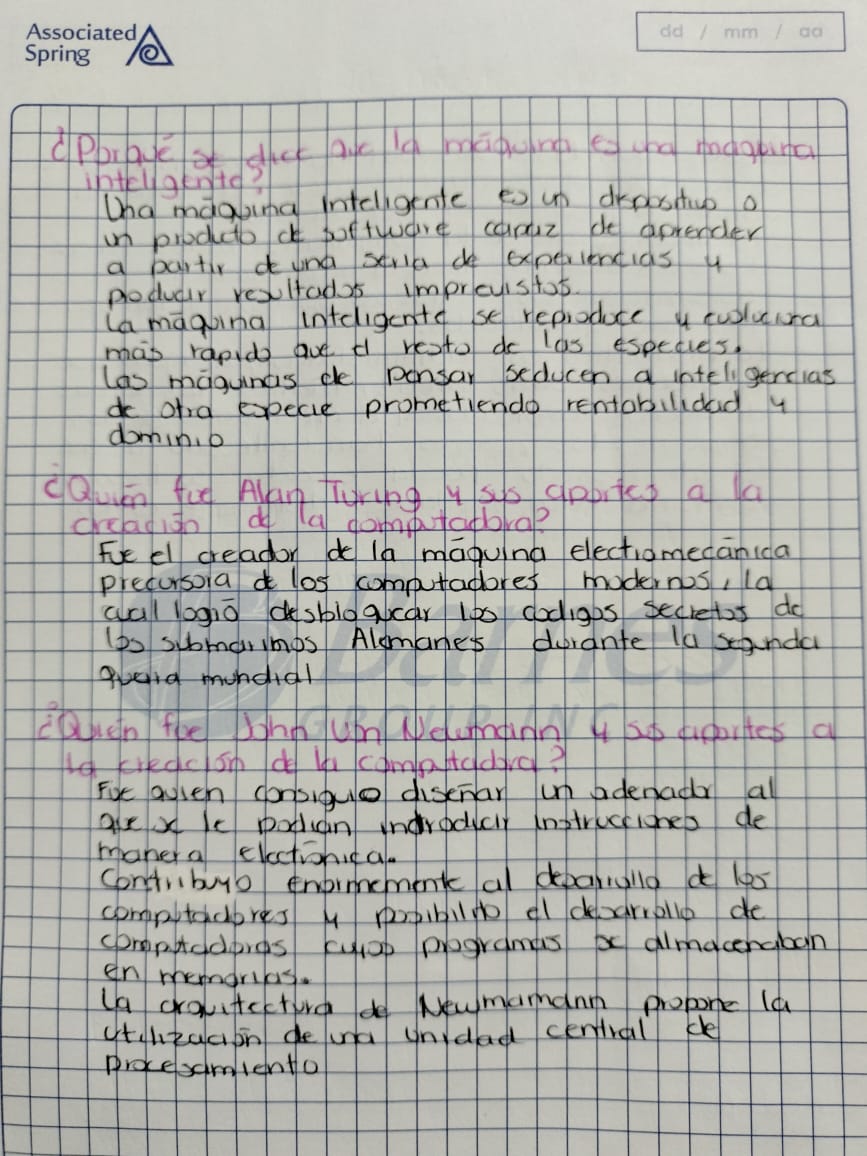 Associated
Spring
dd / mm / aa
¿Porqué se dice que la máquina es una maquina
inteligente?
Una máquina Inteligente es un dispositivo o
un producto de software capaz de aprender
a partir de una seria de experiencias y
producir resultados imprevistos.
La máquina Inteligente se reproduce y evoluciona
más rápido que el resto de las especies.
Las máquinas de pensar seducen a inteligencias
de otra especie prometiendo rentabilidad y
dominio
¿Quién fue Alan Turing y sus aportes a la
creación de la computadora?
Fue el creador de la máquina electromecánica
precursora de los computadores modernos, la
cual logró desbloquear los codigos secretos de
los submarimos Alemanes durante la segunda
guerra mundial
¿Quién fue John Von Newmann y sus aportes a
la creación de la computadora?
Fue quien consiguio diseñar un odenador al
que se le podían indroducir instrucciones de
manera electrónica.
Contribuyo enormemente al desarrollo de los
computadores y posibilito el desarrollo de
computadoras cuyos programas se almacenaban
en memorias.
La arquitectura de Newmamann propone la
utilización de una unidad central de
procesamiento
Barnes
GROUP INC